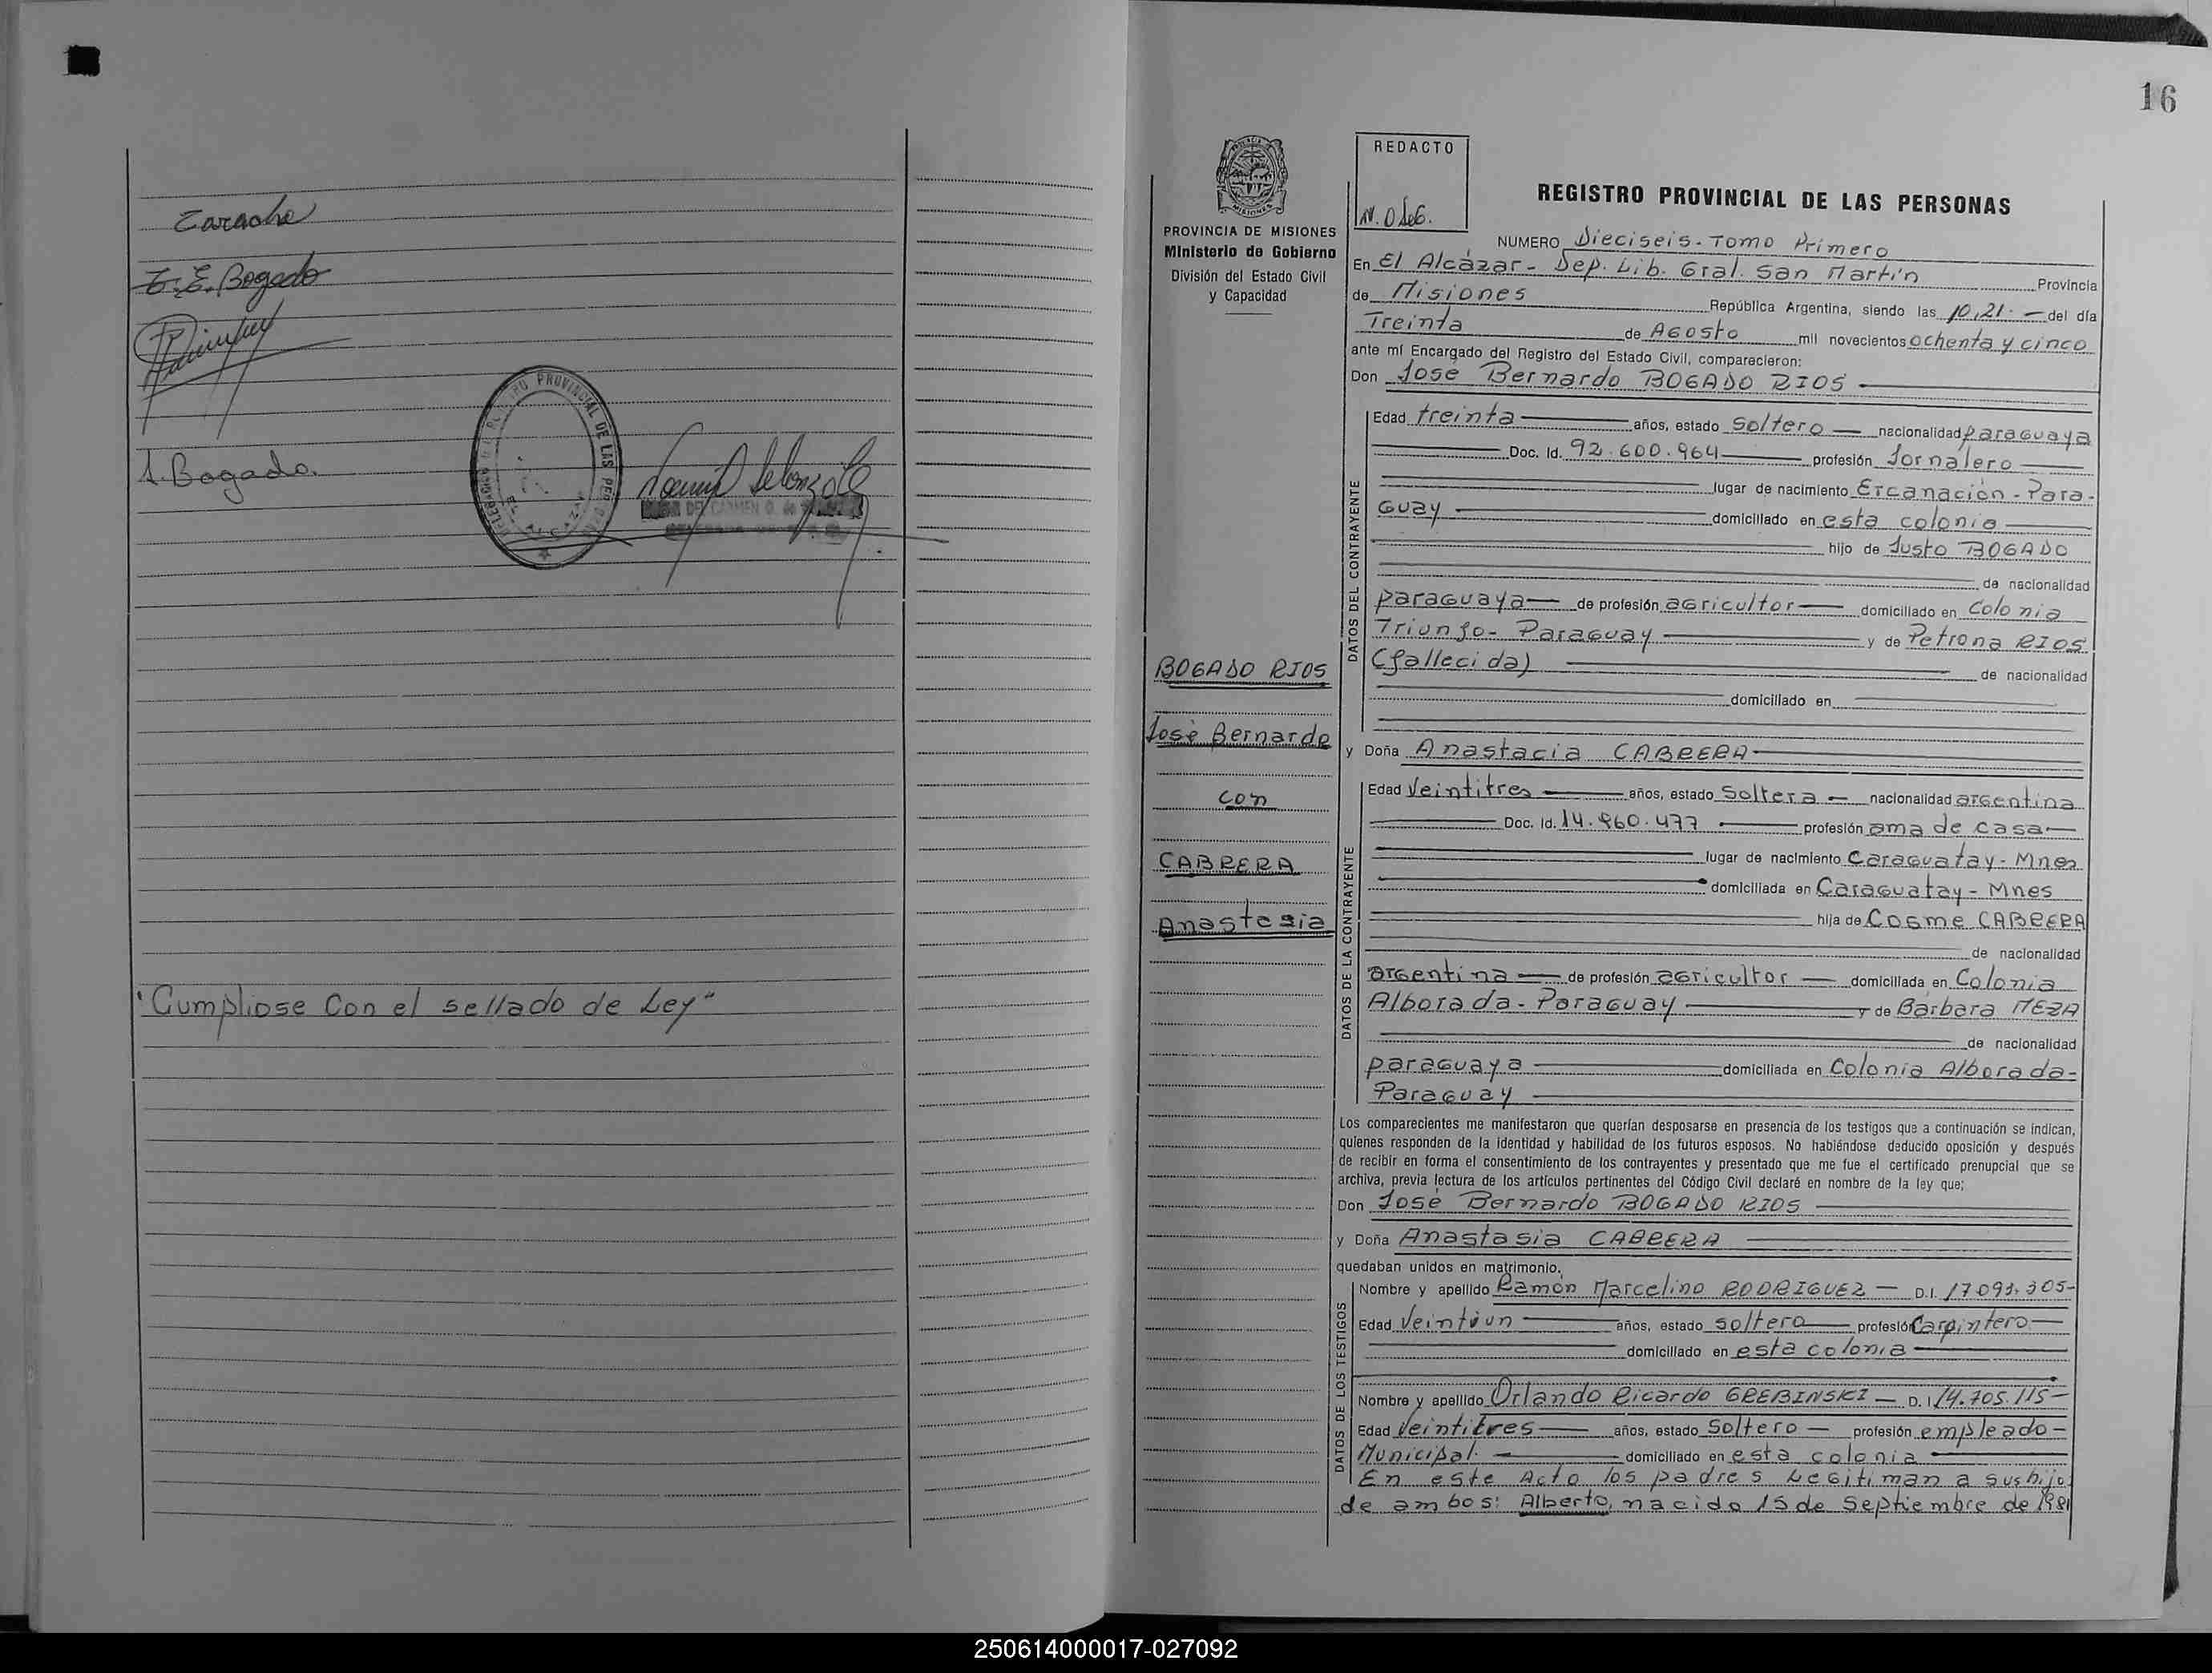 Zaracho
E. E. Bogado
A. Bogado.
REGISTRO PROVINCIAL DE LAS PER
EL ALCAZAR
"Cumpliose Con el sellado de Ley"
16
PROVINCIA DE MISIONES
Ministerio de Gobierno
División del Estado Civil
y Capacidad
BOGADO RIOS
José Bernardo
con
CABRERA
Anastasia
REDACTO
REGISTRO PROVINCIAL DE LAS PERSONAS
NUMERO Dieciseis - Tomo Primero
En El Alcázar - Dep. Lib. Gral. San Martín Provincia
de Misiones República Argentina, siendo las 10,21 - del día
Treinta de Agosto mil novecientos ochenta y cinco
ante mí Encargado del Registro del Estado Civil, comparecieron:
Don José Bernardo BOGADO RIOS
DATOS DEL CONTRAYENTE
Edad treinta años, estado soltero nacionalidad paraguaya
Doc. Id. 92.600.964 profesión Jornalero
lugar de nacimiento Ercanación - Para-
guay domiciliado en esta colonia
hijo de Justo BOGADO
de nacionalidad
paraguaya de profesión agricultor domiciliado en Colonia
Triunfo - Paraguay y de Petrona RIOS
(fallecida) de nacionalidad
domiciliado en
y Doña Anastacia CABRERA
DATOS DE LA CONTRAYENTE
Edad Veintitres años, estado Soltera nacionalidad argentina
Doc. Id. 14.960.477 profesión ama de casa
lugar de nacimiento Caraguatay - Mnes
domiciliada en Caraguatay - Mnes
hija de Cosme CABRERA
de nacionalidad
argentina de profesión agricultor domiciliada en Colonia
Alborada - Paraguay y de Bárbara MEZA
de nacionalidad
paraguaya domiciliada en Colonia Alborada-
Paraguay
Los comparecientes me manifestaron que querían desposarse en presencia de los testigos que a continuación se indican,
quienes responden de la identidad y habilidad de los futuros esposos. No habiéndose deducido oposición y después
de recibir en forma el consentimiento de los contrayentes y presentado que me fue el certificado prenupcial que se
archiva, previa lectura de los artículos pertinentes del Código Civil declaré en nombre de la ley que;
Don José Bernardo BOGADO RIOS
y Doña Anastasia CABRERA
quedaban unidos en matrimonio.
DATOS DE LOS TESTIGOS
Nombre y apellido Ramón Marcelino RODRIGUEZ - D.I. 17.093.305-
Edad Veintiun años, estado soltero profesión Carpintero
domiciliado en esta colonia
Nombre y apellido Orlando Ricardo GREBINSKI - D.I 14.705.115-
Edad Veintitres años, estado Soltero profesión empleado-
Municipal. domiciliado en esta colonia
En este Acto los padres Legitiman a sus hijo
de ambos: Alberto, nacido 15 de Septiembre de 1981
250614000017-027092